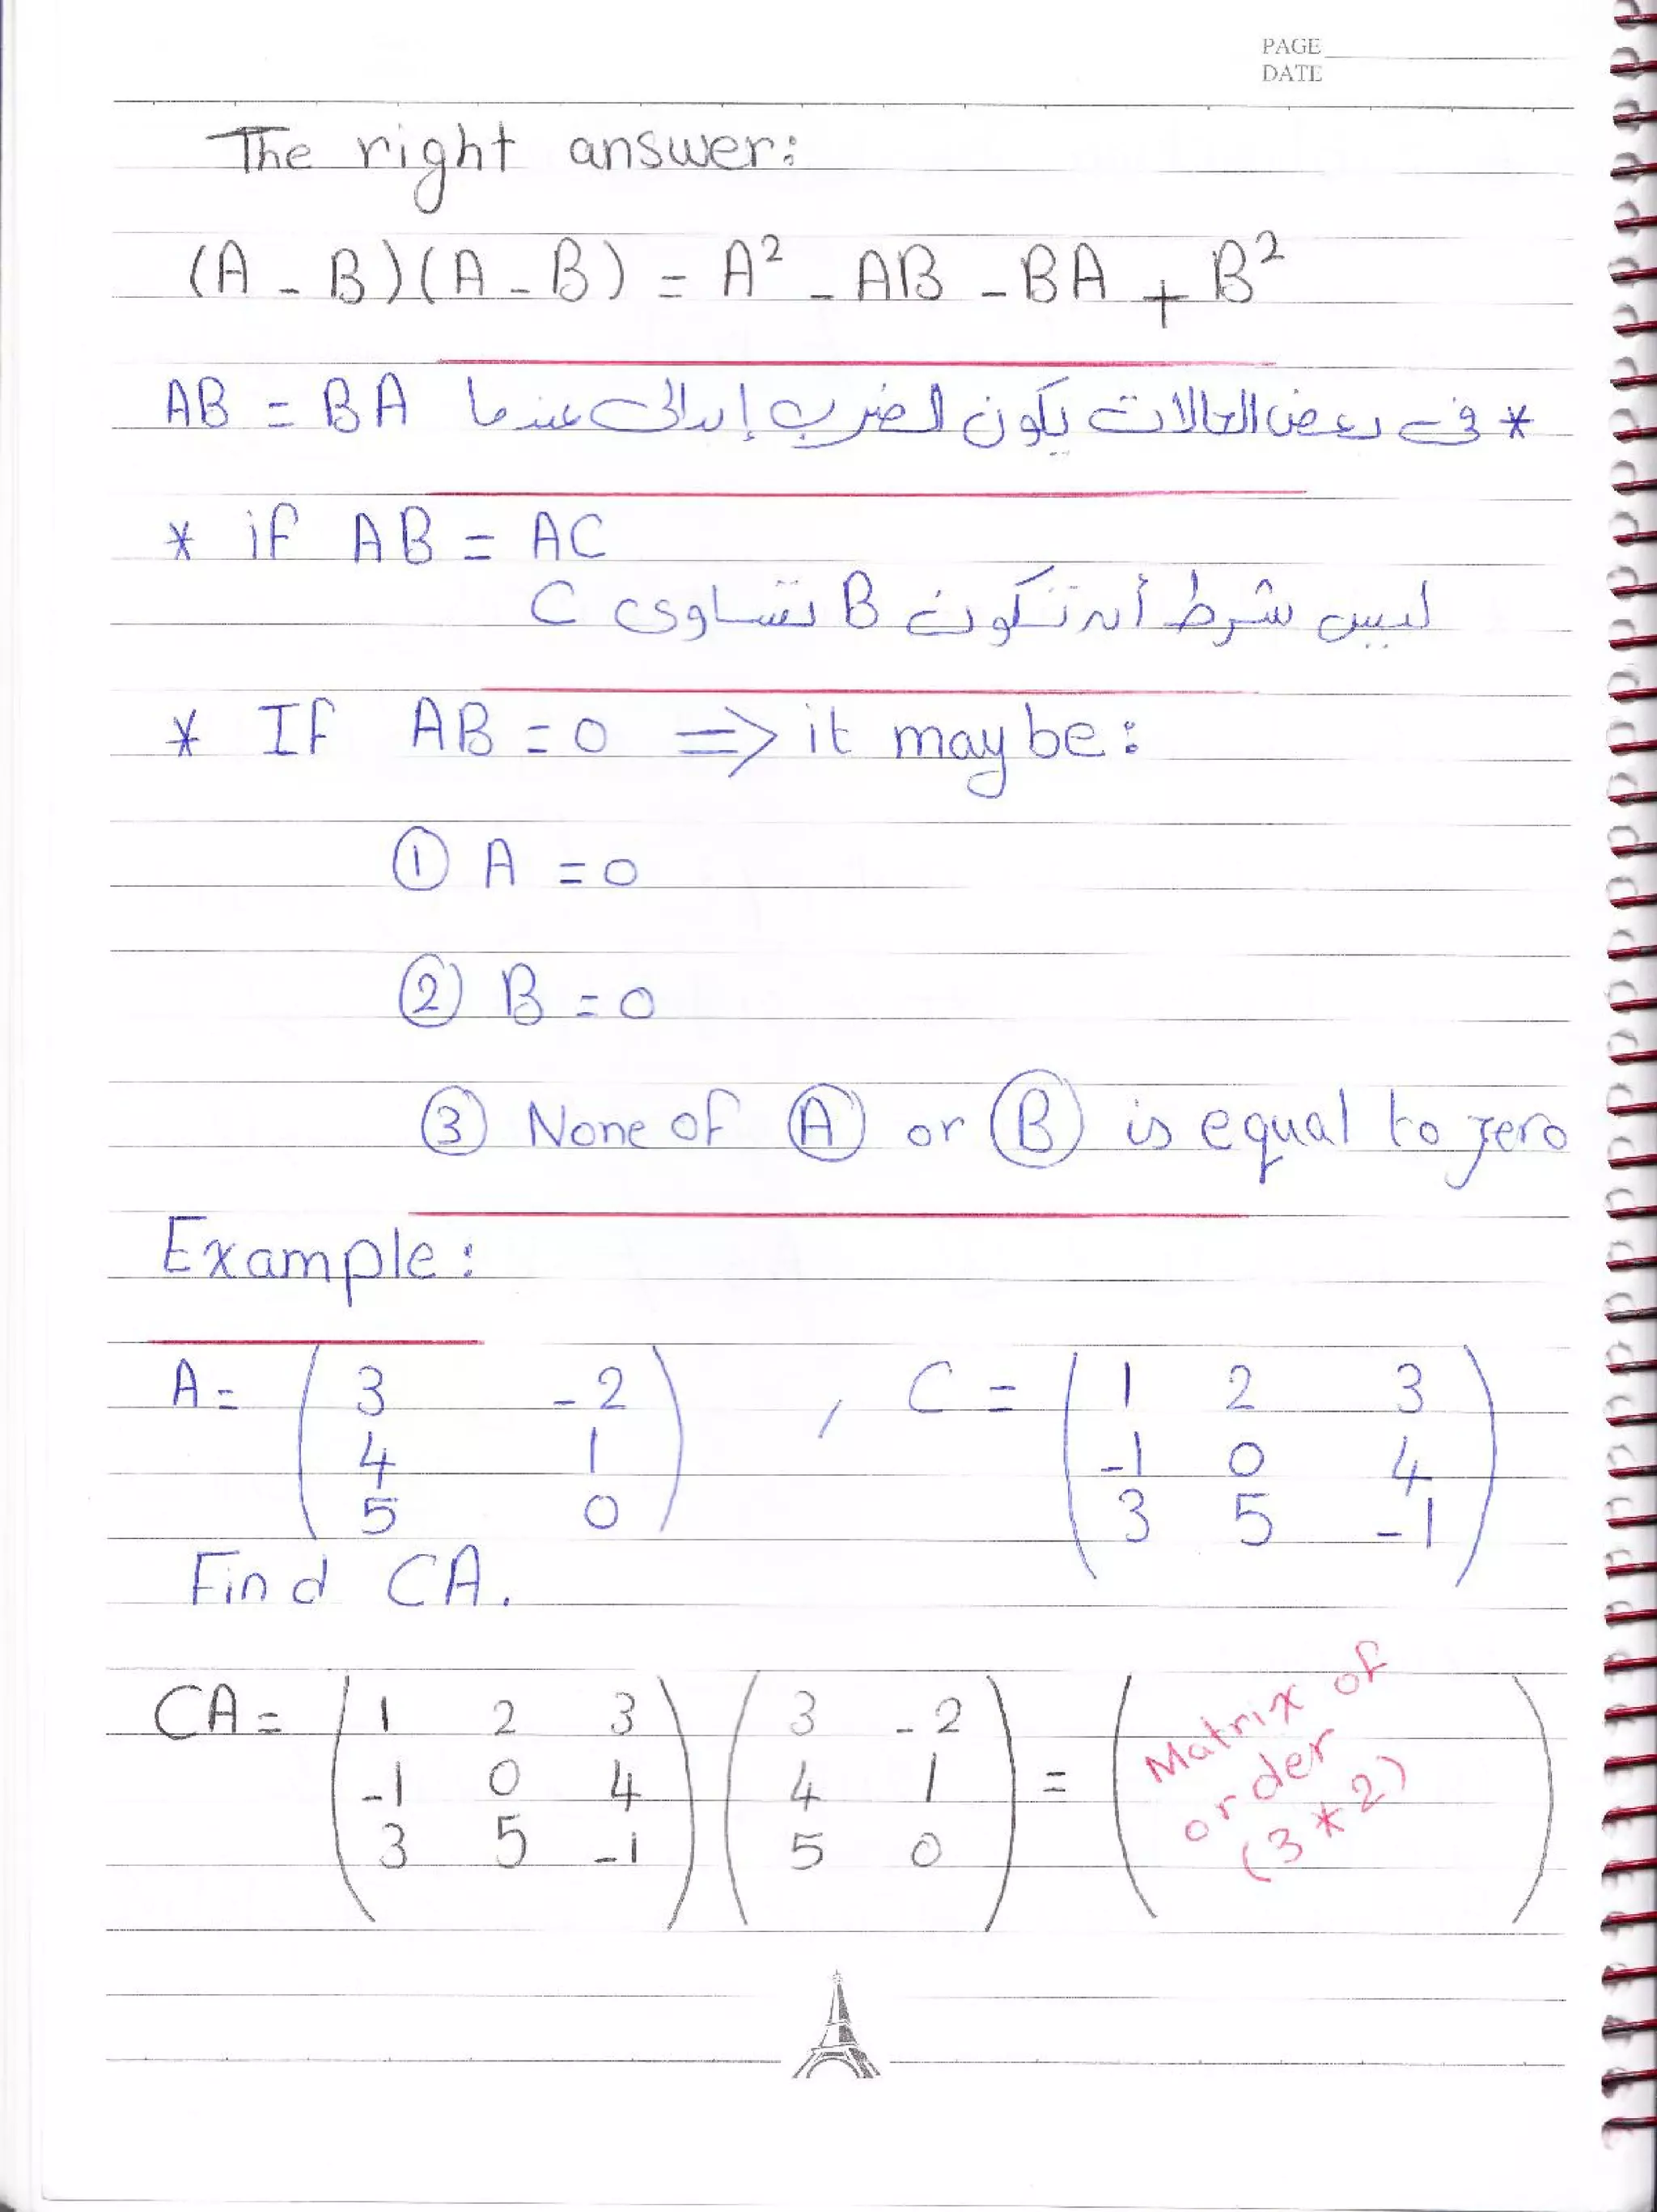 PAGE
DATE
The right answer:
(A - B)(A - B) = A² - AB - BA + B²
* في بعض الحالات يكون الضرب إبدالى عندما AB = BA
* if AB = AC
ليس شرط أن تكون B تساوى C
* If AB = 0 => it may be:
① A = 0
② B = 0
③ None of Ⓐ or Ⓑ is equal to zero
Example:
A = ( 3 -2 ) , C = ( 1 2 3 )
4 1 -1 0 4
5 0 3 5 -1
Find CA.
CA = ( 1 2 3 ) ( 3 -2 ) = ( Matrix of )
-1 0 4 4 1 order
3 5 -1 5 0 (3 * 2)